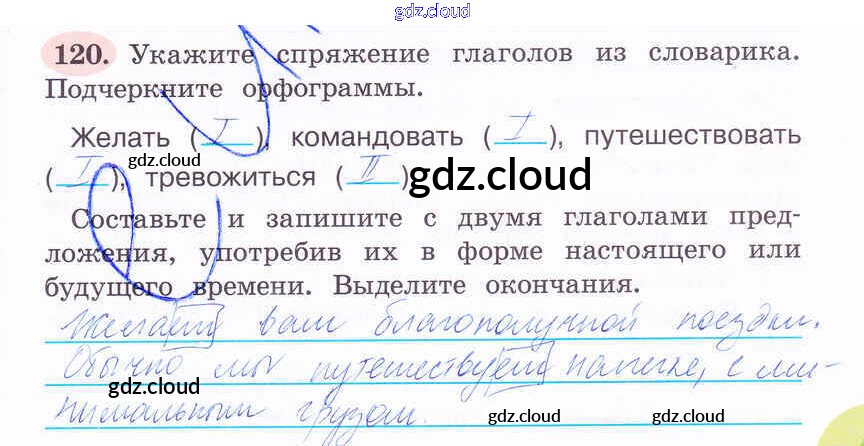 gdz.cloud
120. Укажите спряжение глаголов из словарика.
Подчеркните орфограммы.
Желать ( I ), командовать ( I ), путешествовать
gdz.cloud
( I ), тревожиться ( II )
gdz.cloud
Составьте и запишите с двумя глаголами пред-
ложения, употребив их в форме настоящего или
будущего времени. Выделите окончания.
Желаем вам благополучной поездки.
Обычно мы путешествуем налегке, с ми-
gdz.cloud
нимальным грузом.
gdz.cloud
gdz.cloud